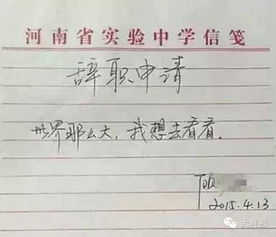 河南省实验中学信笺
辞职申请
世界那么大，我想去看看。
2015.4.13
大周报